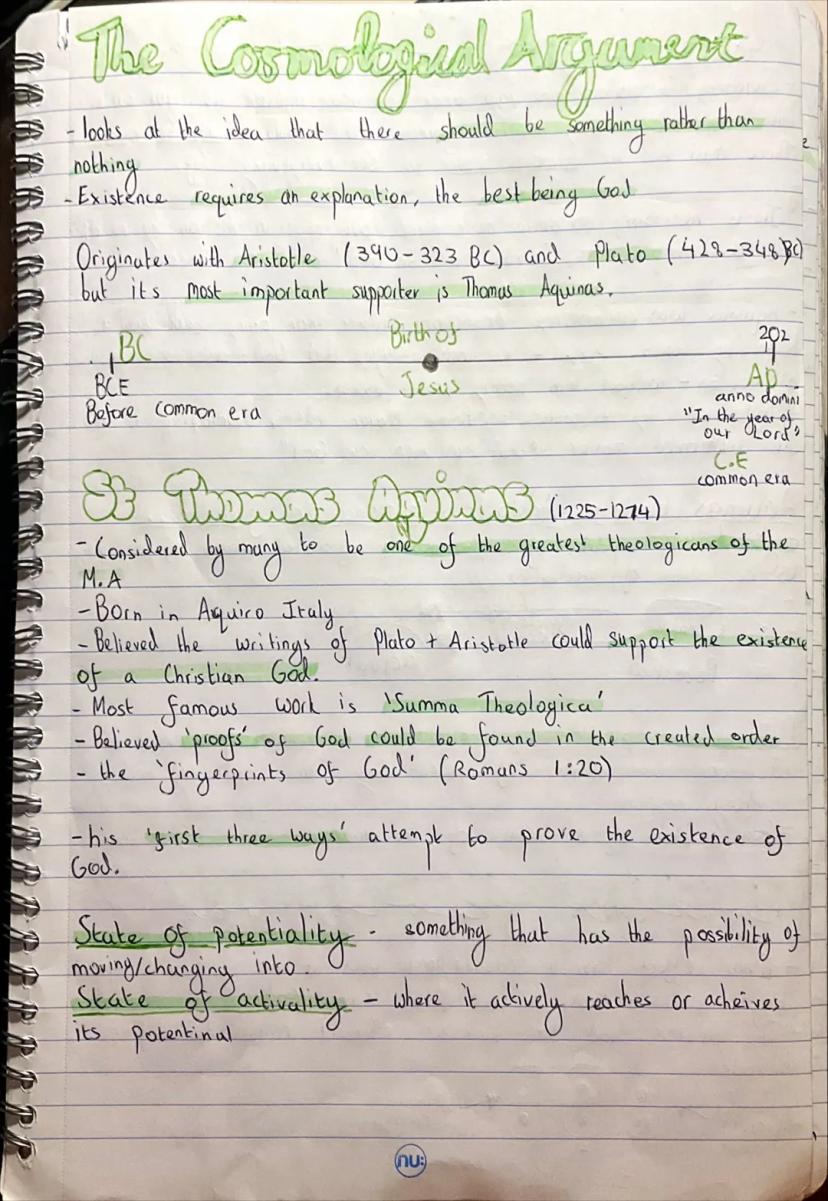 The Cosmological Argument
- looks at the idea that there should be something rather than
nothing
- Existence requires an explanation, the best being God
Originates with Aristotle (390-323 BC) and Plato (428-348 BC)
but its most important supporter is Thomas Aquinas.
BC
Birth of
202
BCE
Jesus
AD
Before common era
anno domini
"In the year of
our Lord"
C.E
common era
St Thomas Aquinas (1225-1274)
- Considered by many to be one of the greatest theologicans of the
M.A
- Born in Aquico Italy
- Believed the writings of Plato + Aristotle could support the existence
of a Christian God.
- Most famous work is 'Summa Theologica'
- Believed 'proofs' of God could be found in the created order
- the 'fingerprints of God' (Romans 1:20)
- his 'first three ways' attempt to prove the existence of
God.
State of potentiality - something that has the possibility of
moving/changing into.
State of activality - where it actively reaches or acheives
its potentinal
nu: